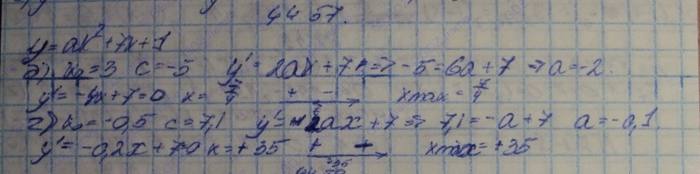 44 57.
y=ax²+7x+1
б) x₀=3 c=-5 y'=2ax+7 => -5=6a+7 => a=-2.
y'=-4x+7=0 x=7/4 + - xmax=7/4
г) x₀=-0,5 c=7,1 y'=2ax+7 => 7,1=-a+7 a=-0,1.
y'=-0,2x+7=0 x=+35 + + xmax=+35